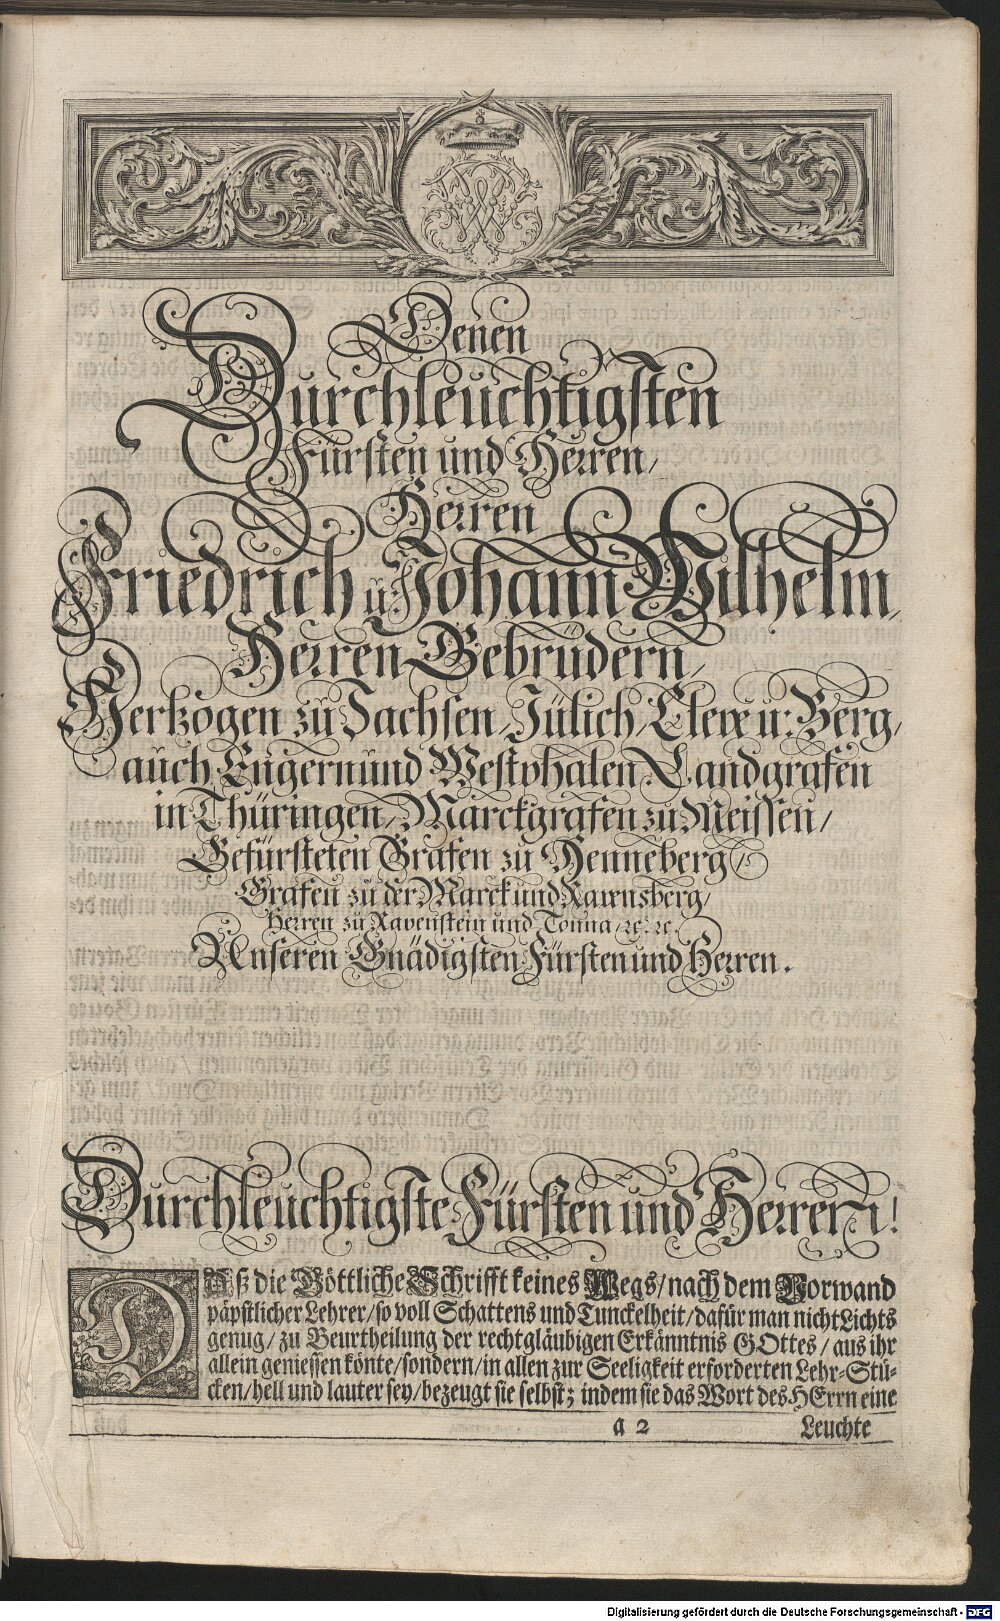 Denen
Durchleuchtigsten
Fürsten und Herren/
Herren
Friedrich u. Johann Wilhelm,
Herren Gebrüdern/
Hertzogen zu Sachsen/Jülich/Cleve u. Berg/
auch Engern und Westphalen/Landgrafen
in Thüringen/Marckgrafen zu Meissen/
Gefürsteten Grafen zu Henneberg/
Grafen zu der Marck und Ravensberg/
Herren zu Ravenstein und Tonna/ꝛc. ꝛc.
Unseren Gnädigsten Fürsten und Herren.
Durchleuchtigste Fürsten und Herren!
DAß die Göttliche Schrifft keines Wegs/nach dem Vorwand
päpstlicher Lehrer/so voll Schattens und Tunckelheit/dafür man nicht Lichts
genug/zu Beurtheilung der rechtgläubigen Erkänntnis GOttes/aus ihr
allein geniessen könte/sondern/in allen zur Seeligkeit erforderten Lehr-Stü-
cken/hell und lauter sey/bezeugt sie selbst; indem sie das Wort des HErrn eine
a 2 Leuchte
Digitalisierung gefördert durch die Deutsche Forschungsgemeinschaft - DFG